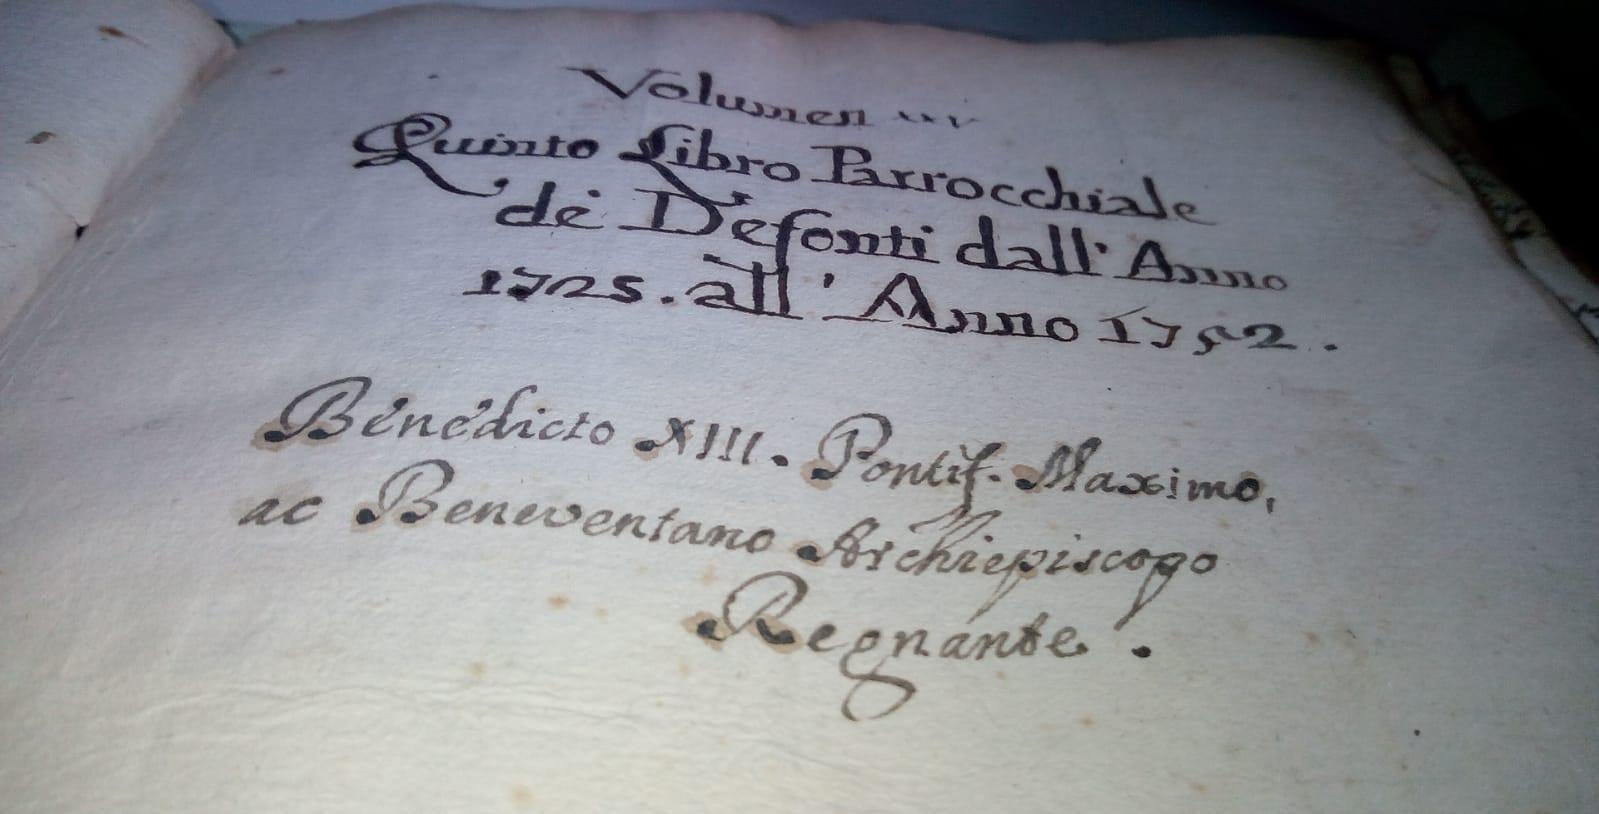 Volumen
Quinto Libro Parrocchiale
de' Defonti dall' Anno
1725. all' Anno 1752.
Benedicto XIII. Pontif. Maximo,
ac Beneventano Archiepiscopo
Regnante.